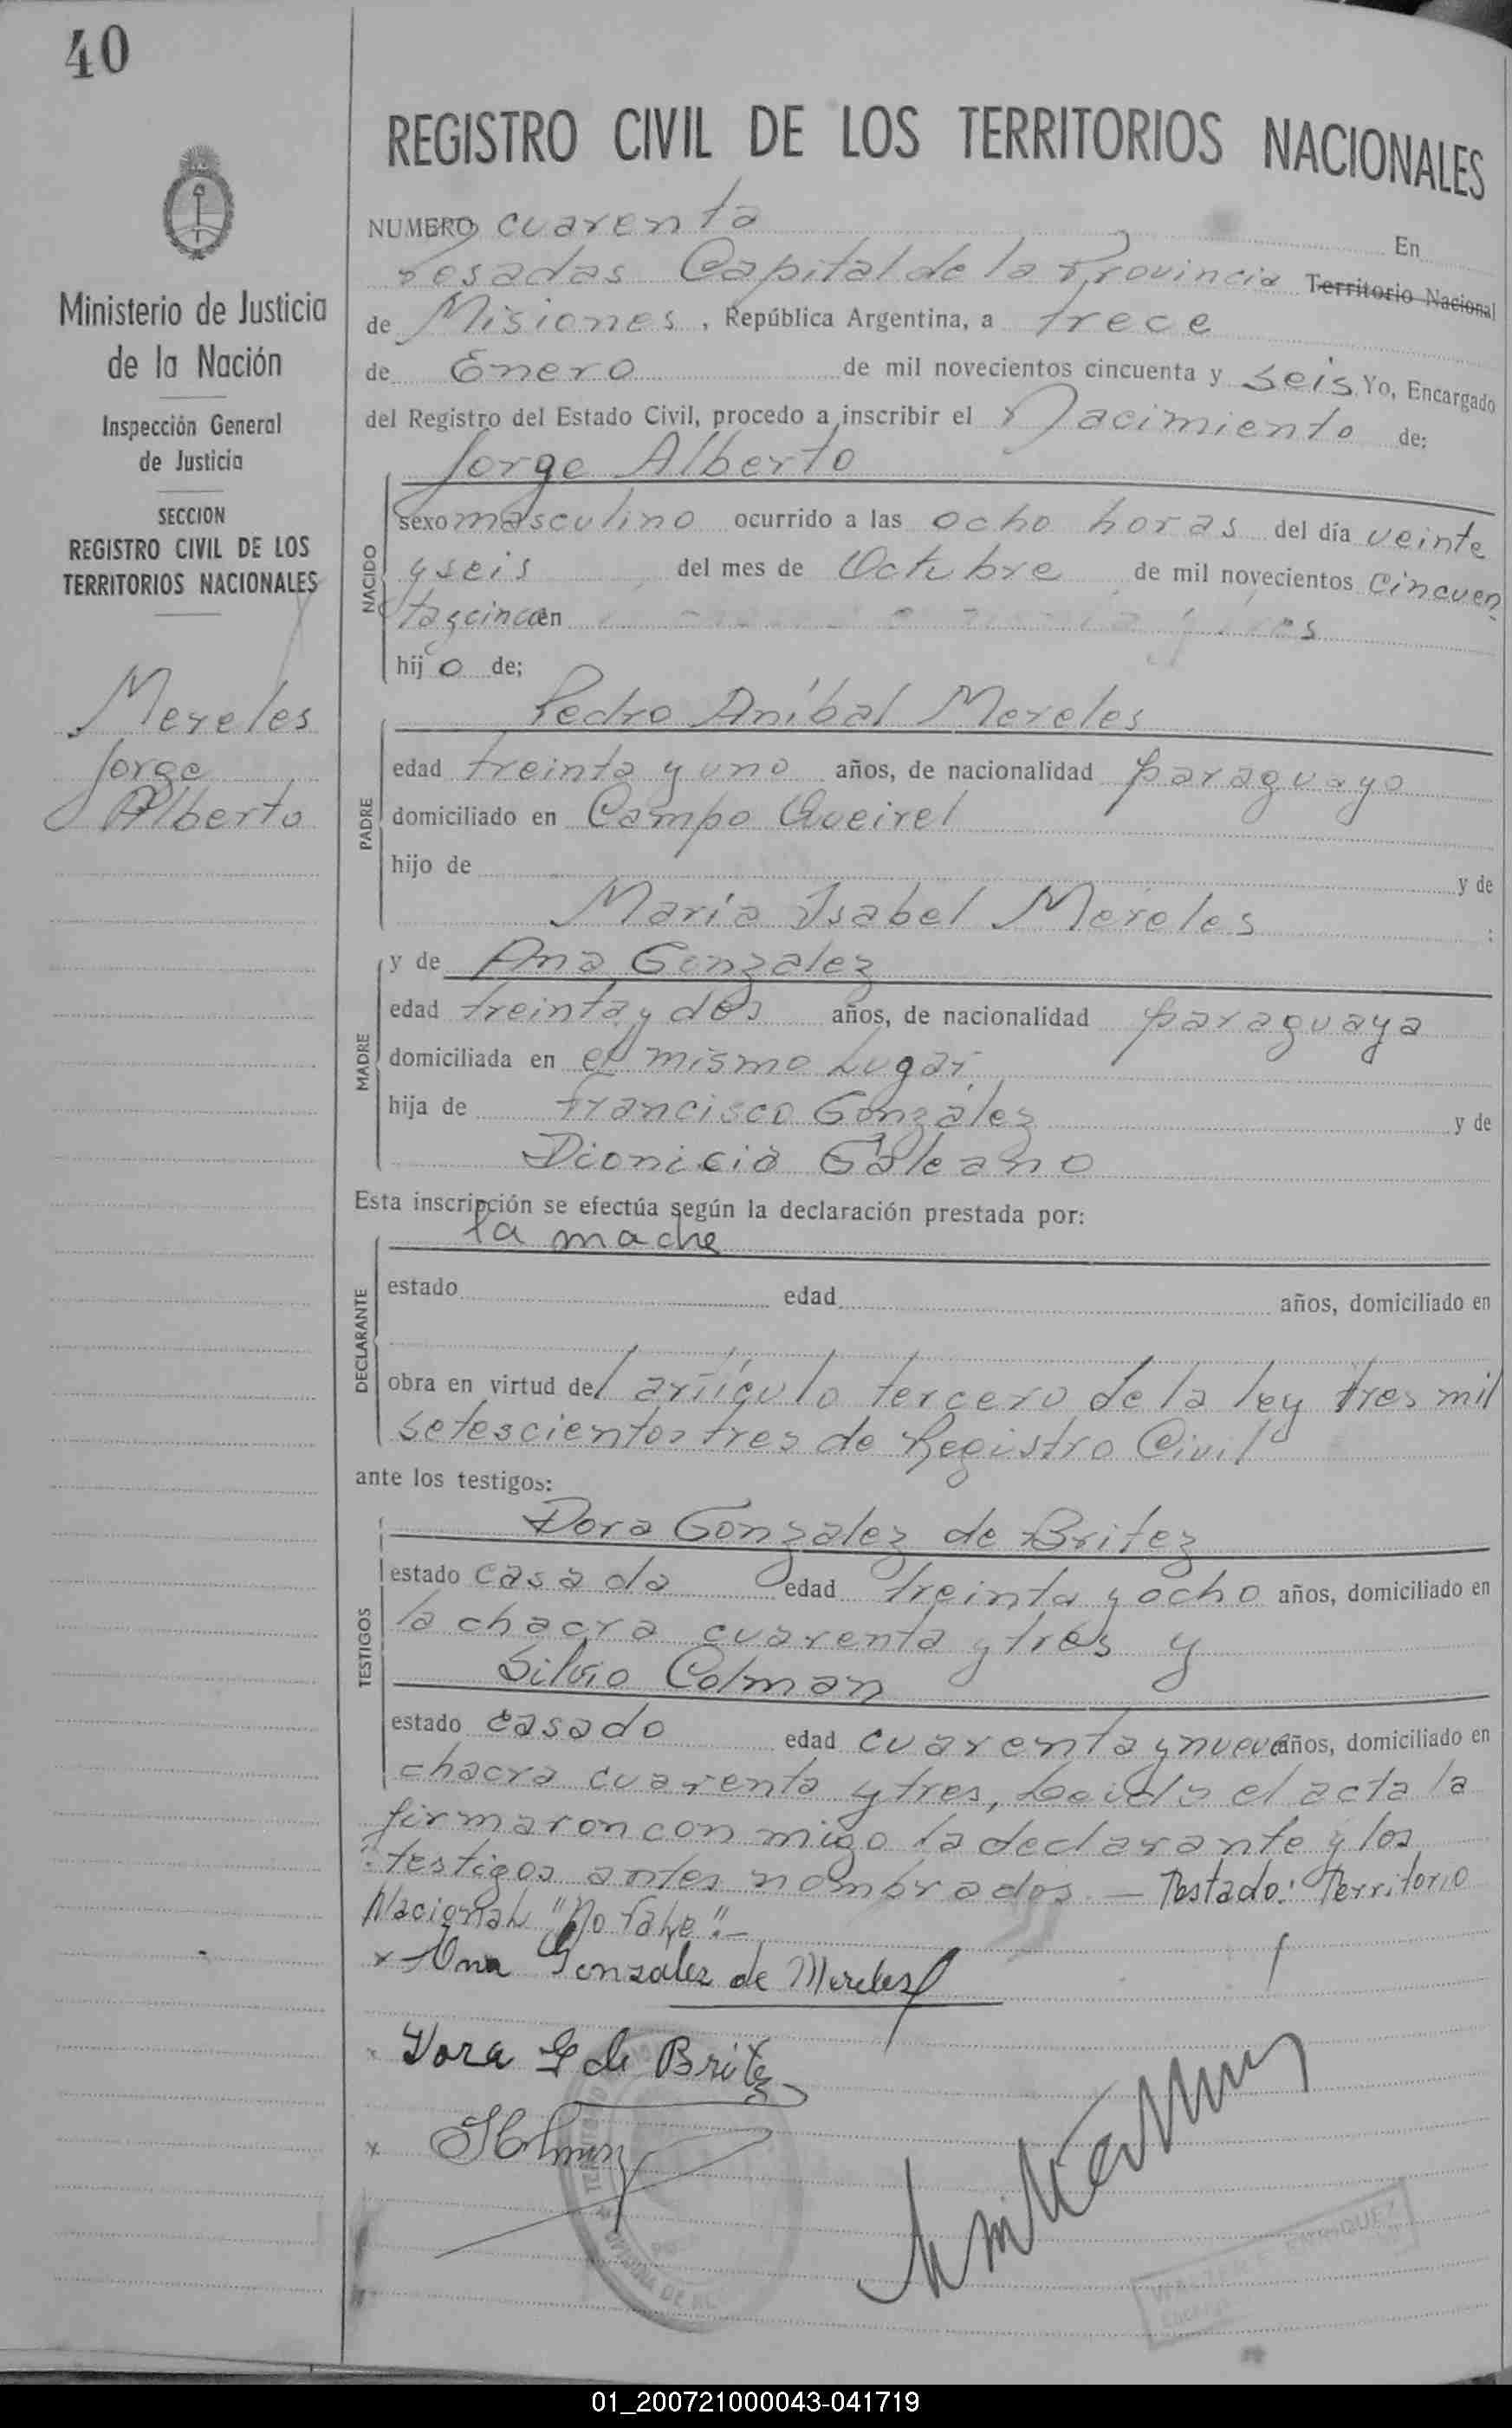 40
REGISTRO CIVIL DE LOS TERRITORIOS NACIONALES
Ministerio de Justicia
de la Nación
Inspección General
de Justicia
SECCION
REGISTRO CIVIL DE LOS
TERRITORIOS NACIONALES
Mereles
Jorge
Alberto
NUMERO cuarenta En
Posadas Capital de la Provincia Territorio Nacional
de Misiones, República Argentina, a trece
de Enero de mil novecientos cincuenta y seis Yo, Encargado
del Registro del Estado Civil, procedo a inscribir el Nacimiento de:
Jorge Alberto
NACIDO
sexo masculino ocurrido a las ocho horas del día veinte
y seis del mes de Octubre de mil novecientos cincuen
ta y cinco en
hijo de;
Pedro Aníbal Mereles
PADRE
edad treinta y uno años, de nacionalidad paraguayo
domiciliado en Campo Queirel
hijo de y de
María Isabel Mereles :
MADRE
y de Ana Gonzalez
edad treinta y dos años, de nacionalidad paraguaya
domiciliada en el mismo Lugar
hija de Francisco González y de
Dionicia Galeano
Esta inscripción se efectúa según la declaración prestada por:
la madre
DECLARANTE
estado edad años, domiciliado en
obra en virtud del artículo tercero de la ley tres mil
setescientos tres de Registro Civil
ante los testigos:
TESTIGOS
Dora Gonzalez de Britez
estado casada edad treinta y ocho años, domiciliado en
la chacra cuarenta y tres y
Silvio Colman
estado casado edad cuarenta y nueve años, domiciliado en
chacra cuarenta y tres, Leida el acta la
firmaron con migo la declarante y los
testigos antes nombrados. — Testado: Territorio
Nacional "No Vale".—
x Ana Gonzalez de Mereles
x Dora G de Britez
x SColman
OFICINA DE
WALTER E. ENRIQUEZ
01_200721000043-041719